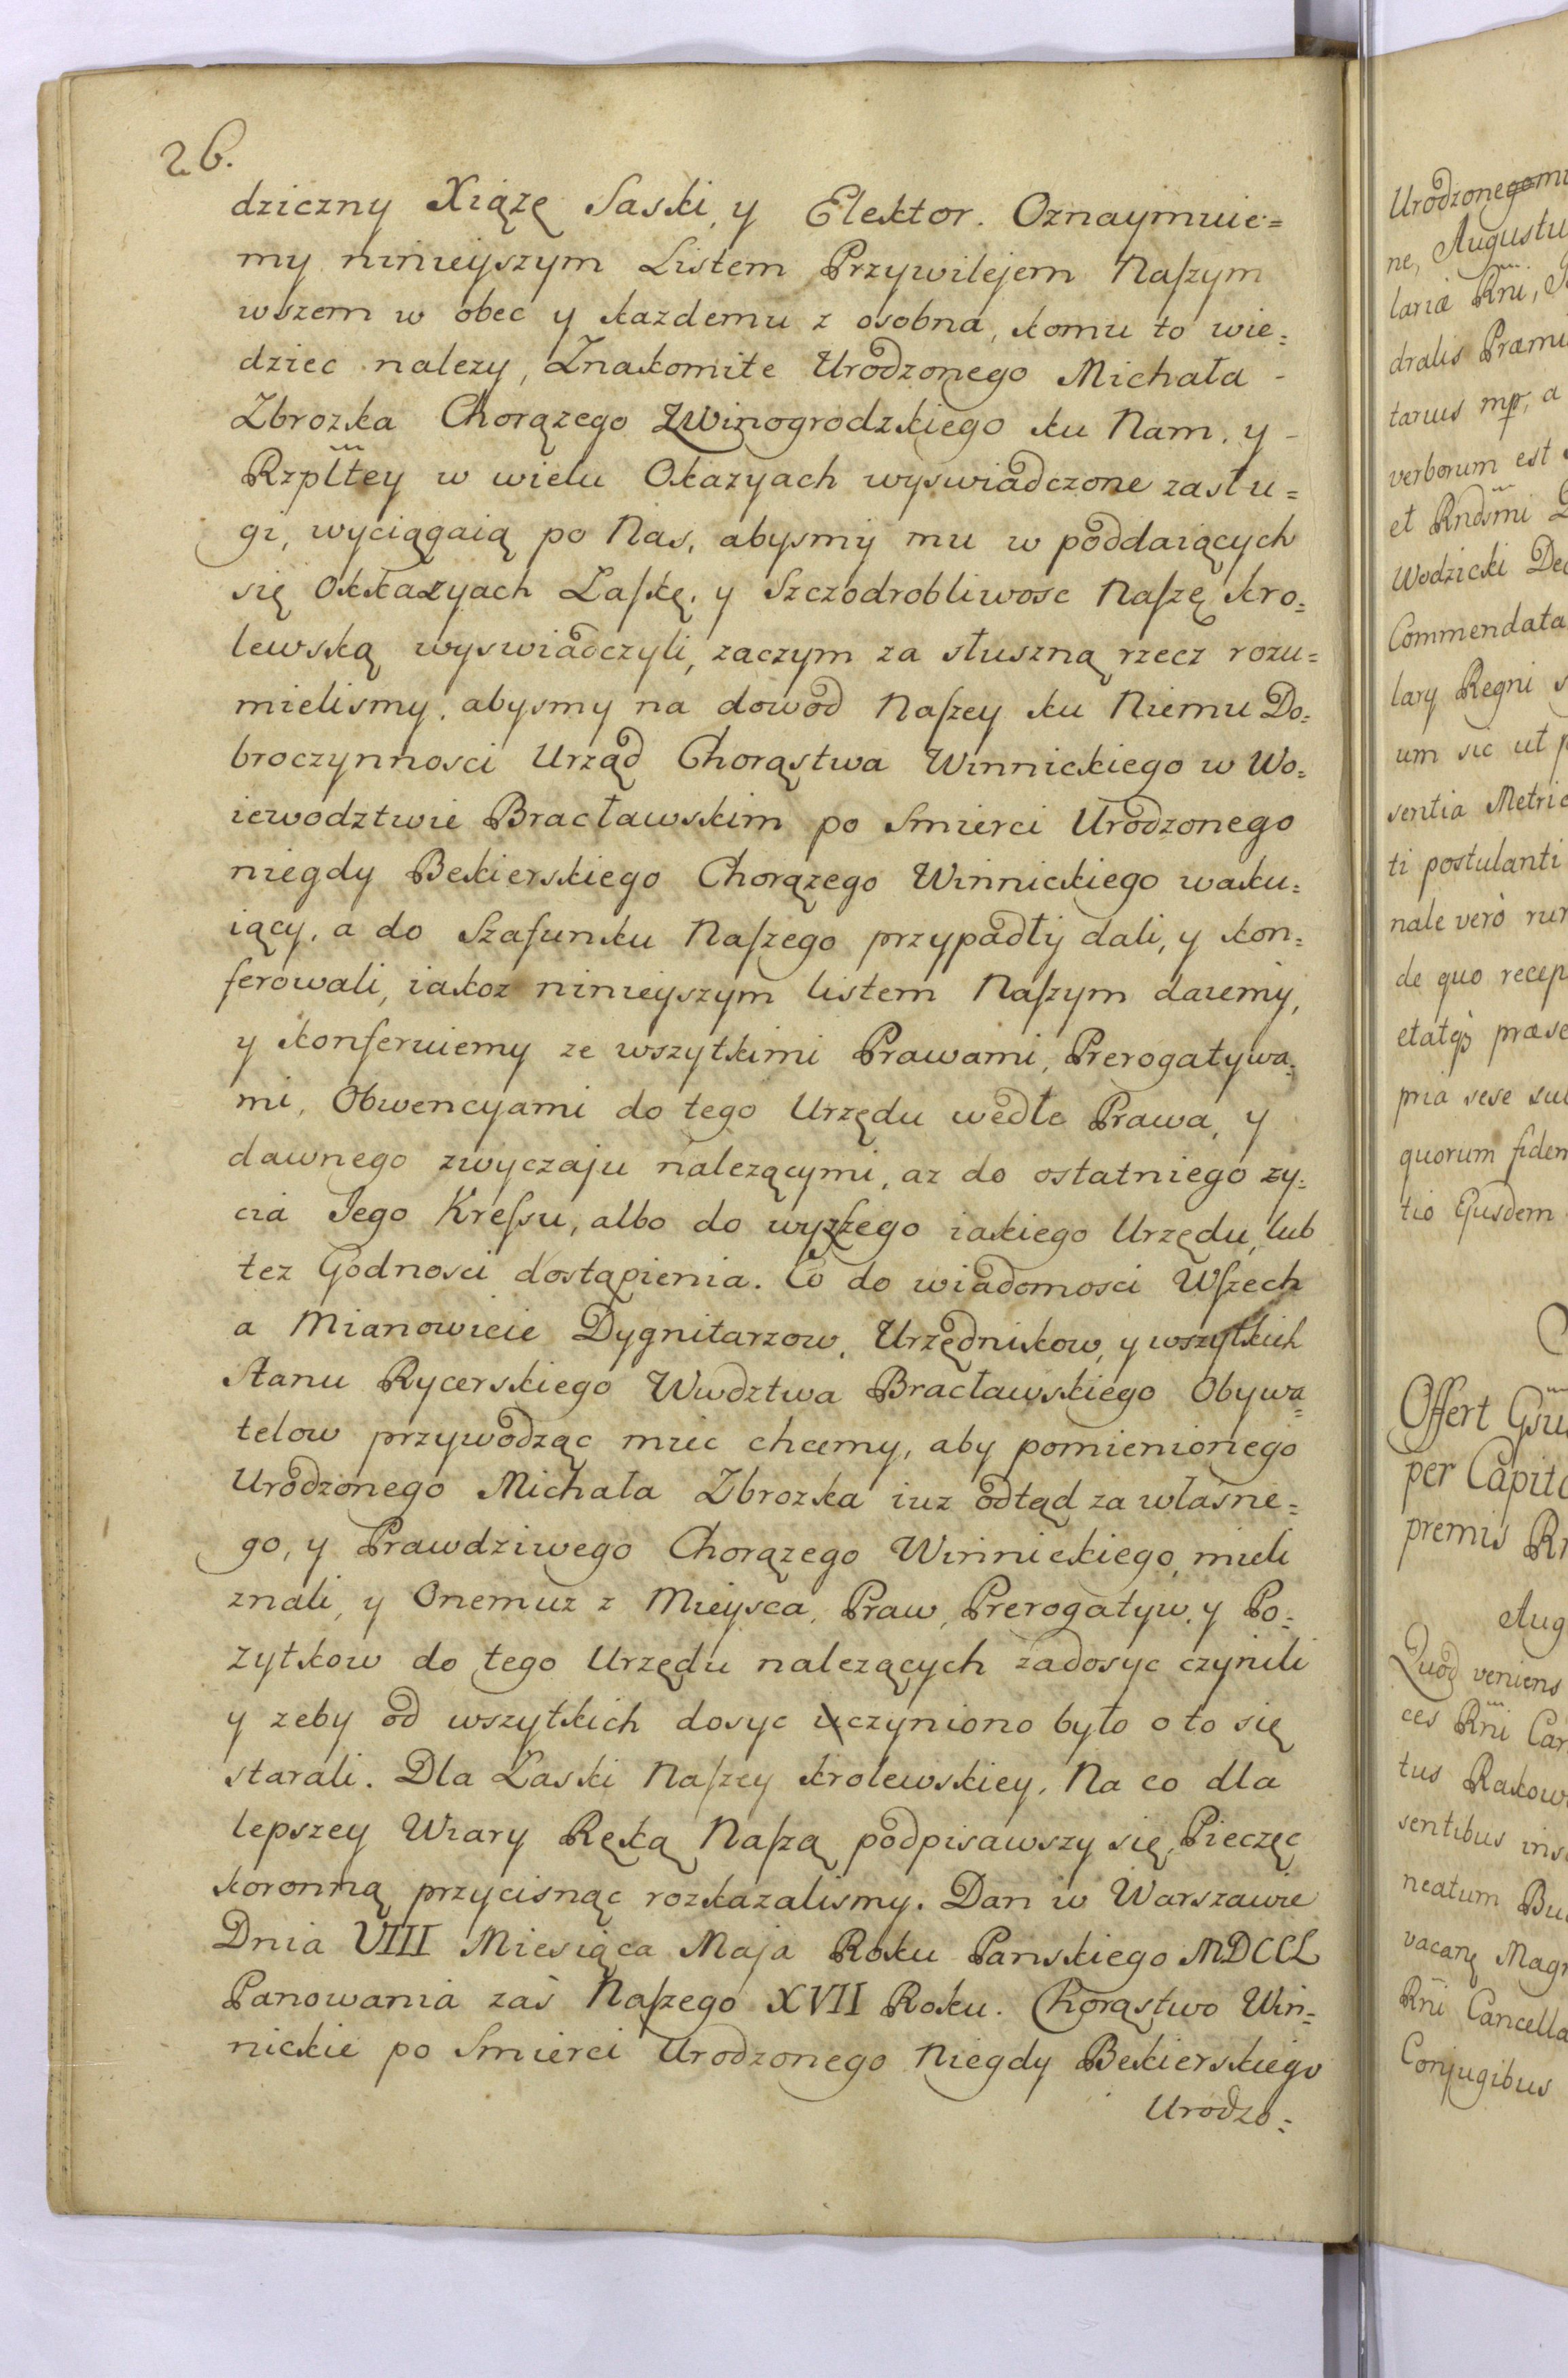 26.
dziczny Xiązę Saski, y Elektor. Oznaymuie=
my ninieyszym Listem Przywilejem Naszym
wszem w obec y kazdemu z osobna, komu to wie=
dziec nalezy, Znakomite Urodzonego Michała -
Zbrozka Chorązego Zwinogrodzkiego ku Nam, y -
Rzpltey w wielu Okazyach wyswiadczone zasłu=
gi, wyciągaią po Nas, abysmy mu w poddaiących
się okkazyach Łaskę, y Szczodrobliwosc Naszę kro=
lewską wyswiadczyli, zaczym za słuszną rzecz rozu=
mielismy, abysmy na dowod Naszey ku Niemu Do=
broczynnosci Urząd Chorąstwa Winnickiego w Wo=
iewodztwie Bracławskim po Smierci Urodzonego
niegdy Bekierskiego Chorązego Winnickiego waku=
iący, a do Szafunku Naszego przypadły dali, y kon=
ferowali, iakoz ninieyszym listem Naszym daiemy,
y konferuiemy ze wszytkimi Prawami, Prerogatywa=
mi, Obwencyami do tego Urzędu wedłe Prawa, y
dawnego zwyczaju nalezącymi, az do ostatniego zy=
cia Jego Kressu, albo do wyzszego iakiego Urzędu, lub
tez Godnosci dostąpienia. Co do wiadomosci Wszech
a Mianowicie Dygnitarzow, Urzędnikow, y wszytkich
Stanu Rycerskiego Wwdztwa Bracławskiego Obywa=
telow przywodząc miec chcemy, aby pomienionego
Urodzonego Michała Zbrozka iuz odtąd za własne=
go, y Prawdziwego Chorązego Winnickiego, mieli
znali, y Onemuz z Mieysca, Praw, Prerogatyw, y Po=
zytkow do tego Urzędu nalezących zadosyc czynili
y zeby od wszytkich dosyc uczyniono było o to się
starali. Dla Łaski Naszey krolewskiey. Na co dla
lepszey Wiary Ręką Naszą podpisawszy się, Pieczęc
koronną przycisnąc rozkazalismy. Dan w Warszawie
Dnia VIII Miesiąca Maja Roku Panskiego MDCCL
Panowania zaś Naszego XVII Roku. Chorąstwo Win=
nickie po Smierci Urodzonego Niegdy Bekierskiego
Urodzo=
Urodzonegomu
ne, Augustu
lariæ Rni,
dralis Præmi
tarius mp, a
verborum est
et Rndsmi
Wodzicki Dec
Commendata
lary Regni s
um sic ut p
sentia Metric
ti postulanti
nale verò rur
de quo recep
etatq præse
pria sese sub
quorum fidem
tio Ejusdem
Offert Gsu
per Capita
premis Rn
Aug
Quod veniens
ces Rni Can
tus Rakow
sentibus ins
neatum Bu
vacanę Magn
Rni Cancella
Conjugibus